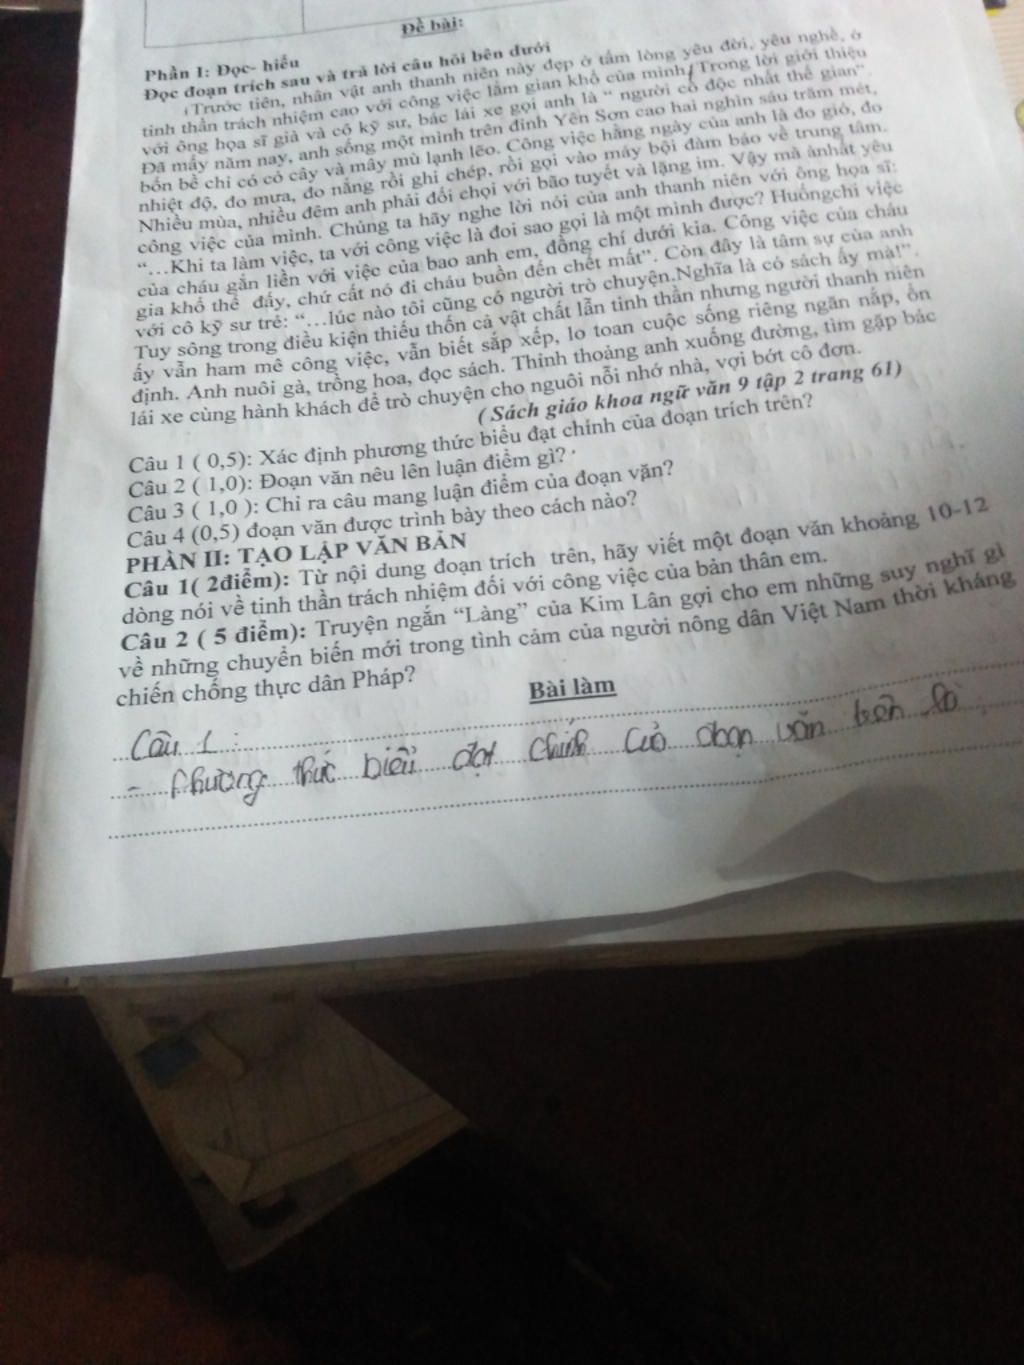 Đề bài:
Phần I: Đọc- hiểu
Đọc đoạn trích sau và trả lời câu hỏi bên dưới
Trước tiên, nhân vật anh thanh niên này đẹp ở tấm lòng yêu đời, yêu nghề, ở
tinh thần trách nhiệm cao với công việc lắm gian khổ của mình. Trong lời giới thiệu
với ông họa sĩ già và cô kỹ sư, bác lái xe gọi anh là “ người cô độc nhất thế gian”.
Đã mấy năm nay, anh sống một mình trên đỉnh Yên Sơn cao hai nghìn sáu trăm mét,
bốn bề chỉ có cỏ cây và mây mù lạnh lẽo. Công việc hằng ngày của anh là đo gió, đo
nhiệt độ, đo mưa, đo nắng rồi ghi chép, rồi gọi vào máy bộ đàm báo về trung tâm.
Nhiều mùa, nhiều đêm anh phải đối chọi với bão tuyết và lặng im. Vậy mà anhất yêu
công việc của mình. Chúng ta hãy nghe lời nói của anh thanh niên với ông họa sĩ:
“…Khi ta làm việc, ta với công việc là đoi sao gọi là một mình được? Huốngchi việc
của cháu gắn liền với việc của bao anh em, đồng chí dưới kia. Công việc của cháu
gia khổ thế đấy, chứ cất nó đi cháu buồn đến chết mất”. Còn đây là tâm sự của anh
với cô kỹ sư trẻ: “…lúc nào tôi cũng có người trò chuyện.Nghĩa là có sách ấy mà!”.
Tuy sông trong điều kiện thiếu thốn cả vật chất lẫn tinh thần nhưng người thanh niên
ấy vẫn ham mê công việc, vẫn biết sắp xếp, lo toan cuộc sống riêng ngăn nắp, ổn
định. Anh nuôi gà, trồng hoa, đọc sách. Thỉnh thoảng anh xuống đường, tìm gặp bác
lái xe cùng hành khách để trò chuyện cho nguôi nỗi nhớ nhà, vợi bớt cô đơn.
( Sách giáo khoa ngữ văn 9 tập 2 trang 61)
Câu 1 ( 0,5): Xác định phương thức biểu đạt chính của đoạn trích trên?
Câu 2 ( 1,0): Đoạn văn nêu lên luận điểm gì?
Câu 3 ( 1,0 ): Chỉ ra câu mang luận điểm của đoạn văn?
Câu 4 (0,5) đoạn văn được trình bày theo cách nào?
PHẦN II: TẠO LẬP VĂN BẢN
Câu 1( 2điểm): Từ nội dung đoạn trích trên, hãy viết một đoạn văn khoảng 10-12
dòng nói về tinh thần trách nhiệm đối với công việc của bản thân em.
Câu 2 ( 5 điểm): Truyện ngắn “Làng” của Kim Lân gợi cho em những suy nghĩ gì
về những chuyển biến mới trong tình cảm của người nông dân Việt Nam thời kháng
chiến chống thực dân Pháp?
Bài làm
Câu 1 :
- Phương thức biểu đạt chính của đoạn văn trên là